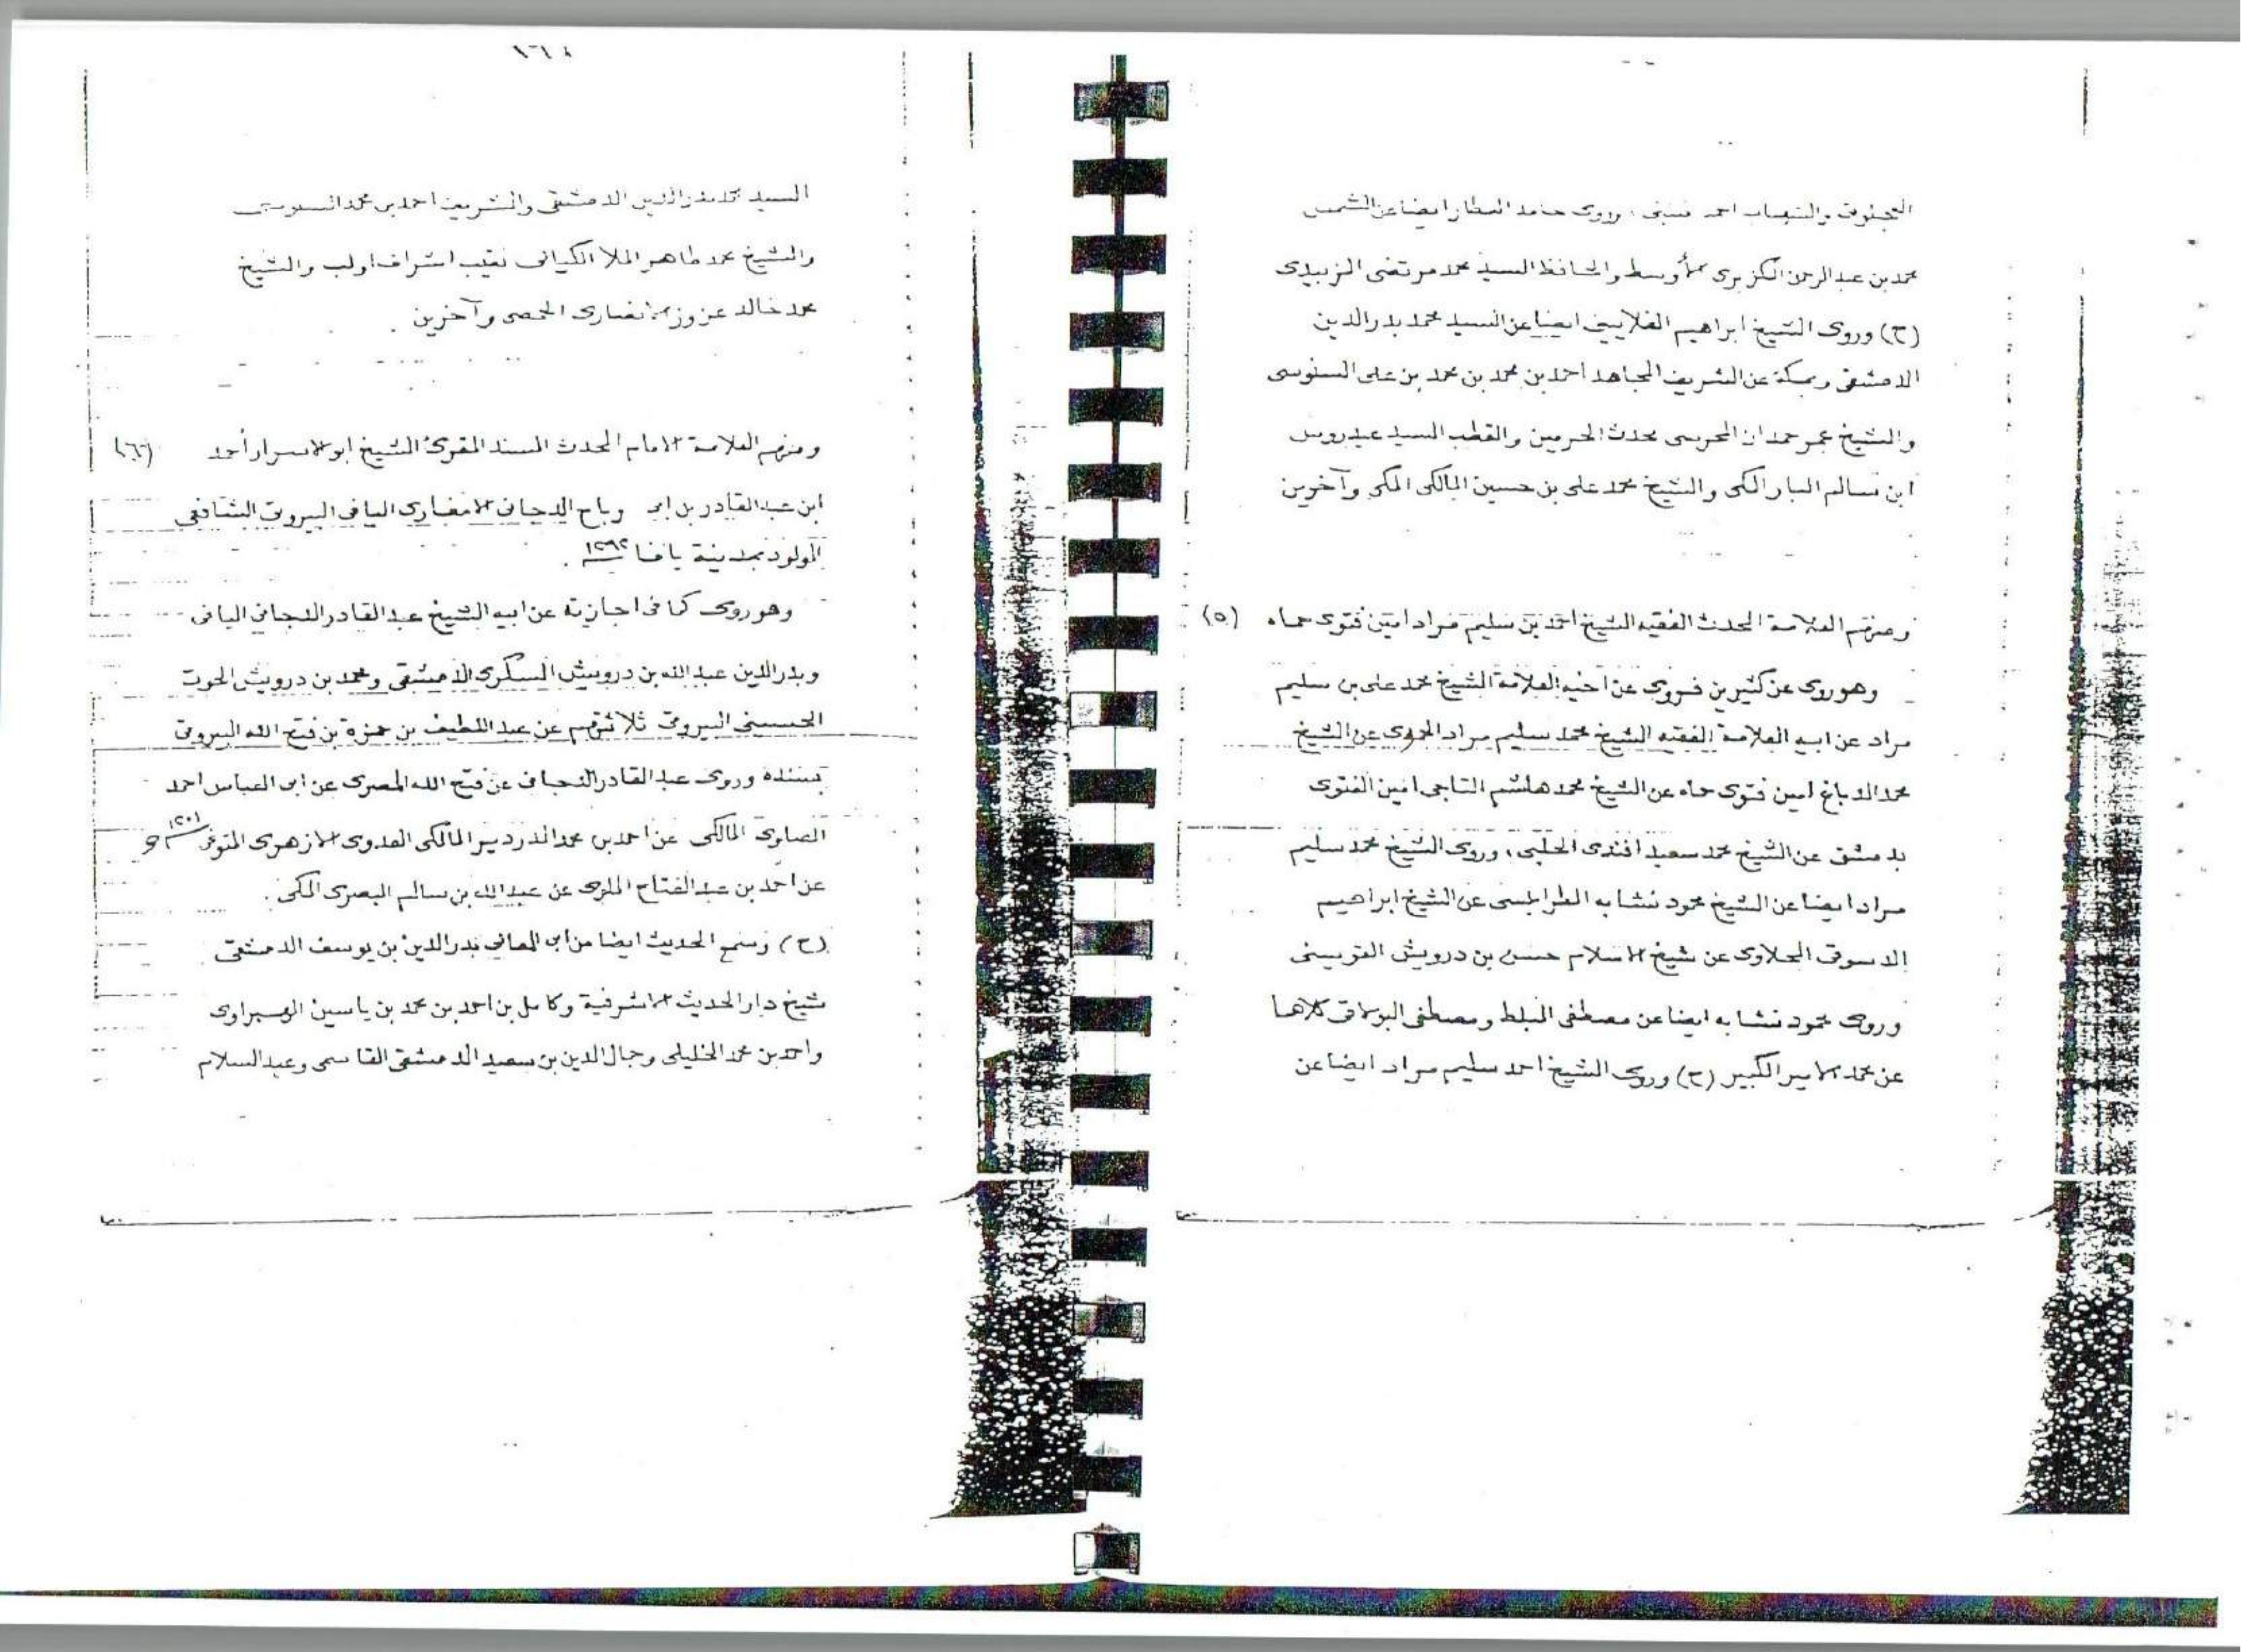 العجلوني والشهاب احمد منيني، وروى حامد العطار ايضا عن الشمس
محمد بن عبد الرحمن الكزبري الأوسط والحافظ السيد محمد مرتضى الزبيدي
(ح) وروى الشيخ ابراهيم الغلاييني ايضا عن السيد محمد بدر الدين
الدمشقي وبمكة عن الشريف المجاهد احمد بن محمد بن محمد بن على السنوسى
والشيخ عمر حمدان المحرسى محدث الحرمين والقطب السيد عيدروس
ابن سالم البار المكى والشيخ محمد على بن حسين المالكى المكى وآخرين
ومنهم العلامة المحدث الفقيه الشيخ احمد بن سليم مراد امين فتوى حماه (٥)
وهو روى عن كثيرين فروى عن اخيه العلامة الشيخ محمد على بن سليم
مراد عن ابيه العلامة الفقيه الشيخ محمد سليم مراد الحموى عن الشيخ
محمد الدباغ امين فتوى حماه عن الشيخ محمد هاشم التاجى امين الفتوى
بدمشق عن الشيخ محمد سعيد افندى الحلبى، وروى الشيخ محمد سليم
مراد ايضا عن الشيخ محمود نشابه الطرابلسى عن الشيخ ابراهيم
الدسوقى عن شيخ الاسلام حسن بن درويش القويسنى
وروى محمود نشابه ايضا عن مصطفى المبلط ومصطفى البولاقى كلاهما
عن محمد الامير الكبير (ح) وروى الشيخ احمد سليم مراد ايضا عن
السيد محمد بدر الدين الدمشقى والشريف احمد بن محمد السنوسى
والشيخ محمد طاهر الملا الكيالى نقيب اشراف ادلب والشيخ
محمد خالد الانصارى الحمصى وآخرين
ومنهم العلامة الامام المحدث المسند المقرئ الشيخ ابو الاسرار أحمد (٦)
ابن عبد القادر بن ابى رباح الدجانى الانصارى اليافى البيروتى الشافعى
المولود بمدينة يافا ١٢٩٢.
وهو روى كما فى اجازته عن ابيه الشيخ عبد القادر الدجانى اليافى
وبدر الدين عبد الله بن درويش السكرى الدمشقى ومحمد بن درويش الحوت
الحسينى البيروتى ثلاثتهم عن عبد اللطيف بن حمزة بن فتح الله البيروتى
بسنده وروى عبد القادر الدجانى عن فتح الله المصرى عن ابى العباس احمد
الصاوى المالكى عن احمد بن محمد الدردير المالكى العدوى الازهرى المتوفى ١٢٠١
عن احمد بن عبد الفتاح الملوى عن عبد الله بن سالم البصرى المكى.
(ح) وسمع الحديث ايضا من ابى المعالى بدر الدين بن يوسف الدمشقى
شيخ دار الحديث الاشرفية وكامل بن احمد بن محمد بن ياسين الهبراوى
واحمد بن محمد الخليلى وجمال الدين بن سعيد الدمشقى القاسمى وعبد السلام